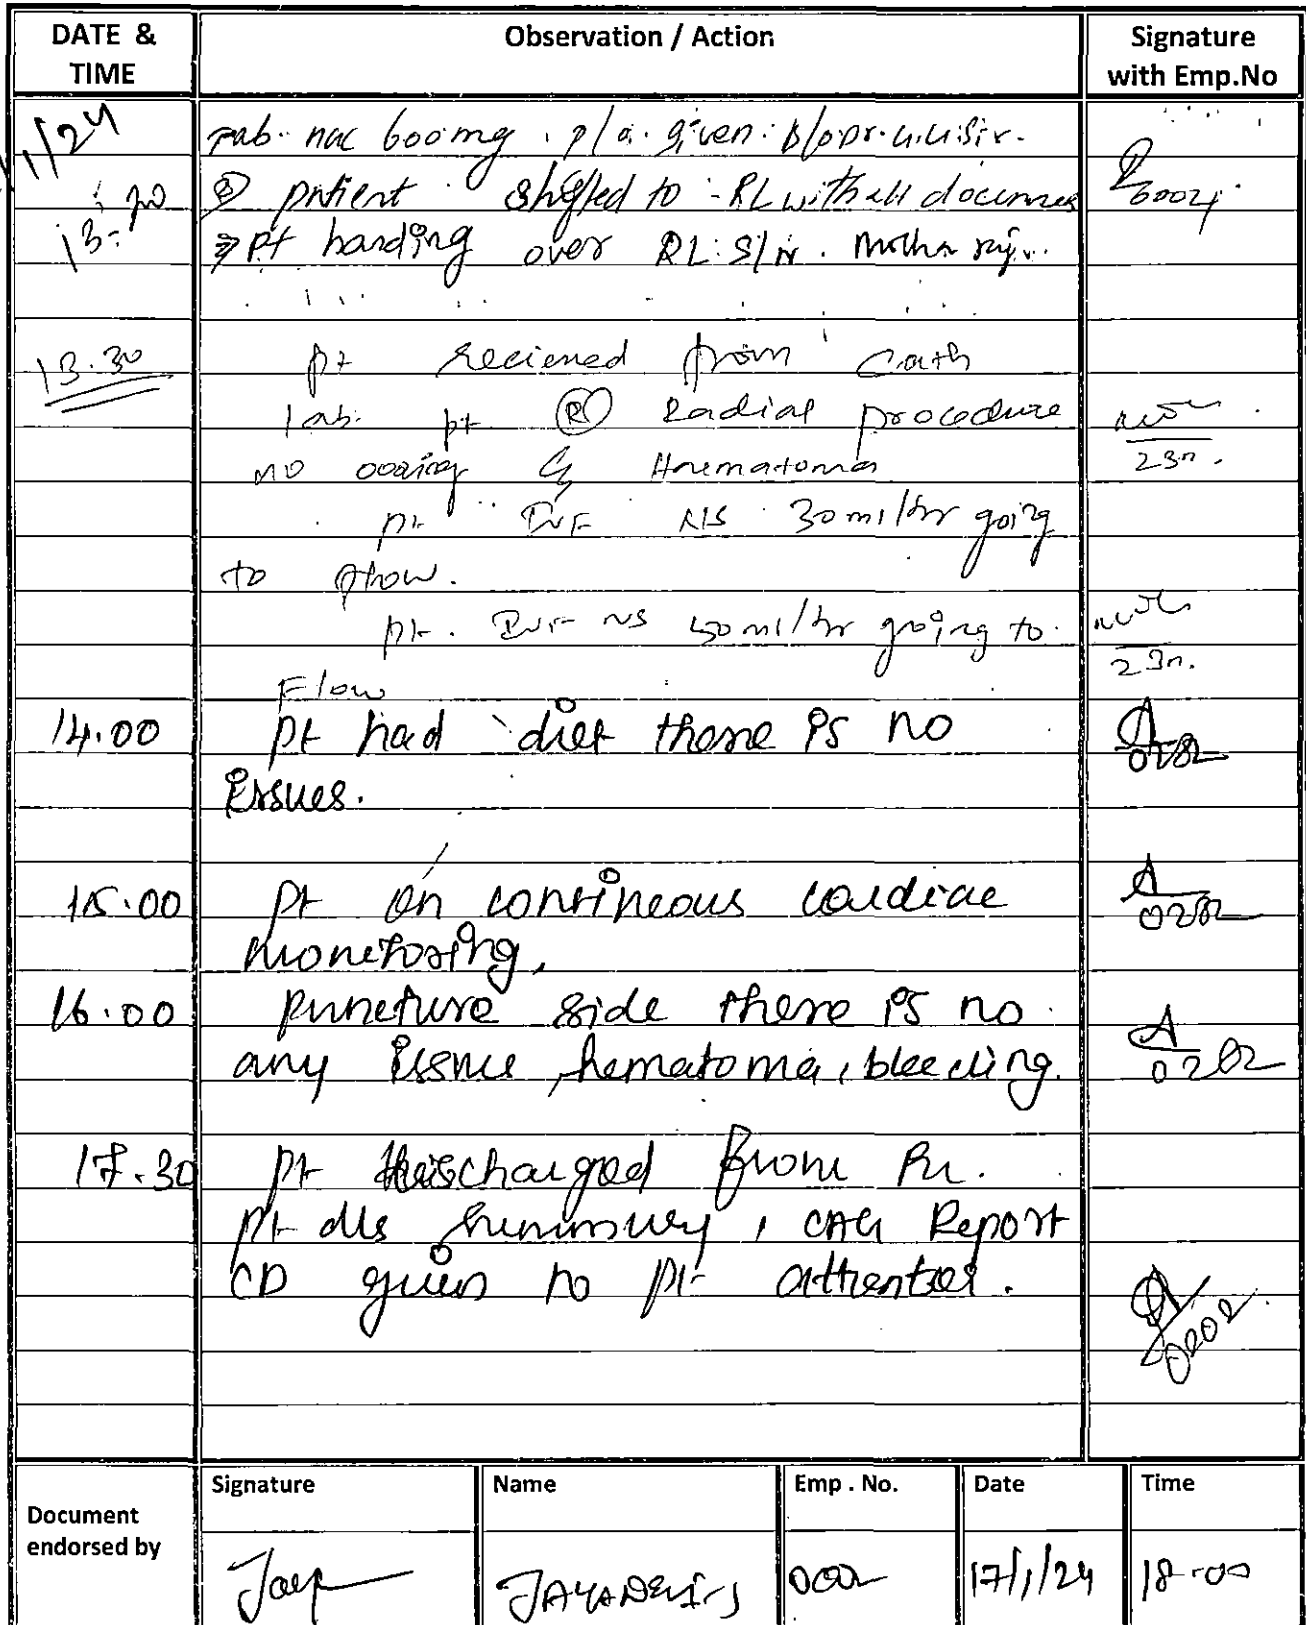 DATE & TIME
Observation / Action
Signature with Emp.No
1/24
Tab. nac 600mg. p/a. given.
13:20
patient shifted to RL with all
pt handing over RL. S/N.
13.30
pt recieved from Cath
lab. pt (R) Radial procedure
no oozing Haematoma
pt IVF NS 30 ml/hr going
to flow.
pt. IVF NS 50 ml/hr going to
Flow
14.00
pt had diet there is no
issues.
0282
15.00
pt on contineous cardiac
monitoring.
0282
16.00
puncture side there is no
any issue, hematoma, bleeding.
0202
17.30
pt discharged from
pt d/s summury, CAG Report
CD given to pt attender.
0202
Document endorsed by
Signature
Name
Emp . No.
Date
Time
JAYADEVI.J
17/1/24
18.00